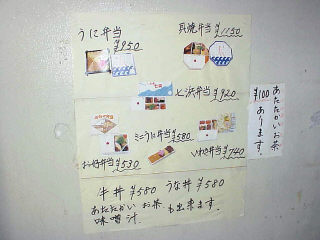 うに弁当
¥950
貝焼弁当 ¥1150
七浜弁当 ¥920
ミニうに弁当 ¥580
お好弁当 ¥530
いわき弁当 ¥740
牛丼 ¥580 うな丼 ¥580
あたたかい お茶 も出来ます。
味噌汁
あたたかいお茶
¥100 あります。